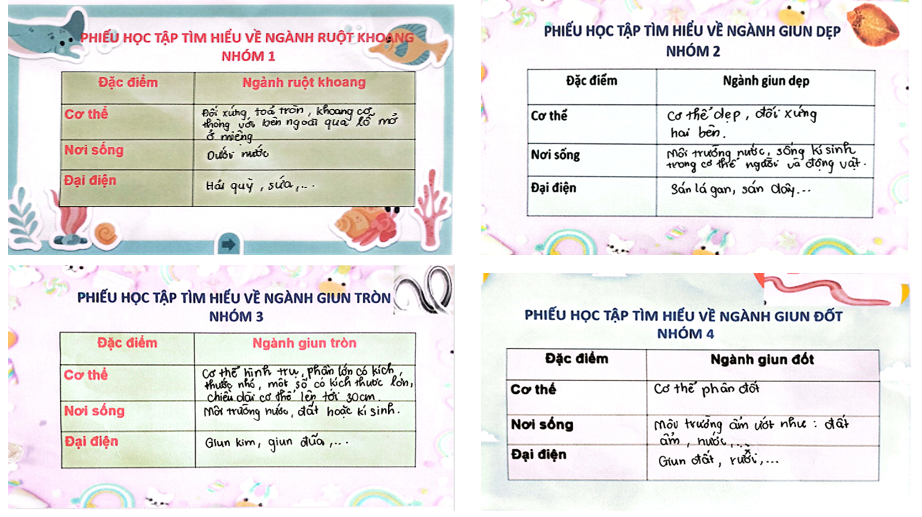 PHIẾU HỌC TẬP TÌM HIỂU VỀ NGÀNH RUỘT KHOANG
NHÓM 1
Đặc điểm
Ngành ruột khoang
Cơ thể
Đối xứng toả tròn, khoang cơ
thông với bên ngoài qua lỗ mở
ở miệng
Nơi sống
Dưới nước
Đại điện
Hải quỳ, sứa,...
PHIẾU HỌC TẬP TÌM HIỂU VỀ NGÀNH GIUN DẸP
NHÓM 2
Đặc điểm
Ngành giun dẹp
Cơ thể
Cơ thể dẹp, đối xứng
hai bên.
Nơi sống
Môi trường nước, sống kí sinh
trong cơ thể người và động vật.
Đại điện
Sán lá gan, sán dây...
PHIẾU HỌC TẬP TÌM HIỂU VỀ NGÀNH GIUN TRÒN
NHÓM 3
Đặc điểm
Ngành giun tròn
Cơ thể
Cơ thể hình trụ, phần lớn có kích
thước nhỏ, một số có kích thước lớn,
chiều dài cơ thể lên tới 30cm.
Nơi sống
Môi trường nước, đất hoặc kí sinh.
Đại điện
Giun kim, giun đũa,...
PHIẾU HỌC TẬP TÌM HIỂU VỀ NGÀNH GIUN ĐỐT
NHÓM 4
Đặc điểm
Ngành giun đốt
Cơ thể
Cơ thể phân đốt
Nơi sống
Môi trường ẩm ướt như: đất
ẩm, nước,...
Đại điện
Giun đất, rươi,...